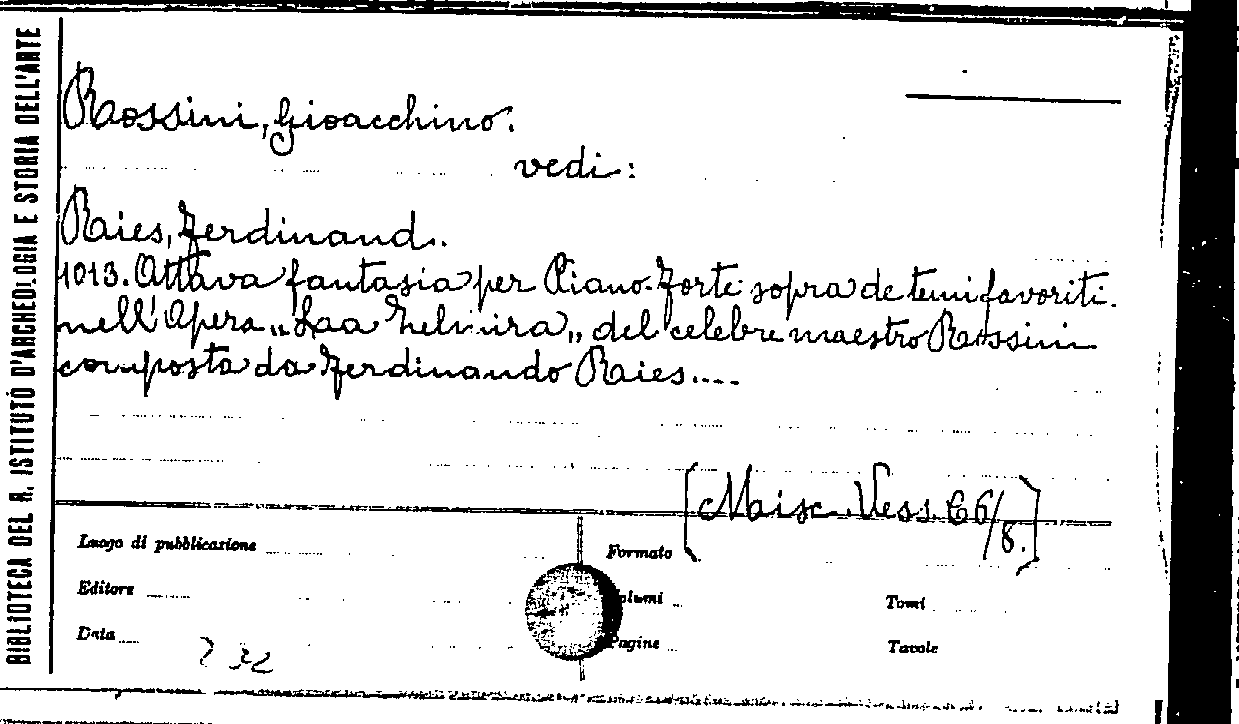 BIBLIOTECA DEL R. ISTITUTO D'ARCHEOLOGIA E STORIA DELL'ARTE
Rossini, Gioacchino.
vedi:
Raies, Ferdinand.
1013. Ottava fantasia per Piano-Forte sopra de temi favoriti
nell'Opera „Laa Zelmira„ del celebre maestro Rossini
composta da Ferdinando Raies....
[Misc. Vess. C6/8.]
Luogo di pubblicazione
Formato
Editore
Volumi
Tomi
Data
Pagine
Tavole
732